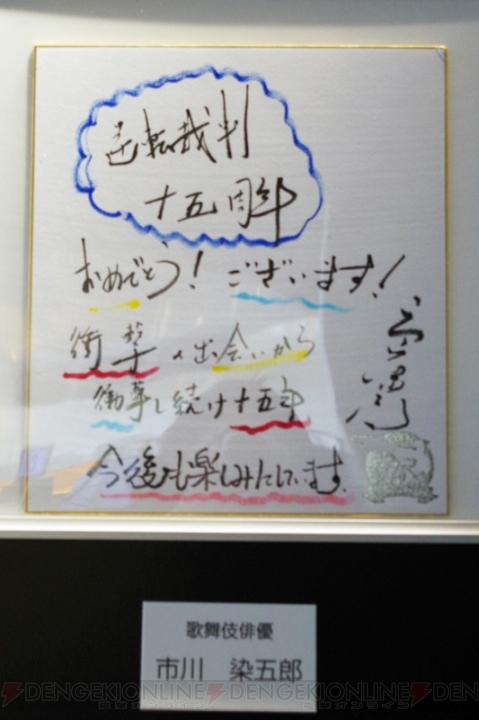 逆転裁判
十五周年
おめでとう！ございます！
衝撃の出会いから
衝撃し続け十五年
今後も楽しみにしています。
歌舞伎俳優
市川 染五郎
DENGEKIONLINE DENGEKIONLINE